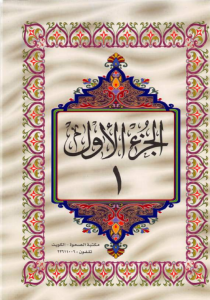 الجزء الأول
١
مكتبة الصحوة - الكويت
تلفون :